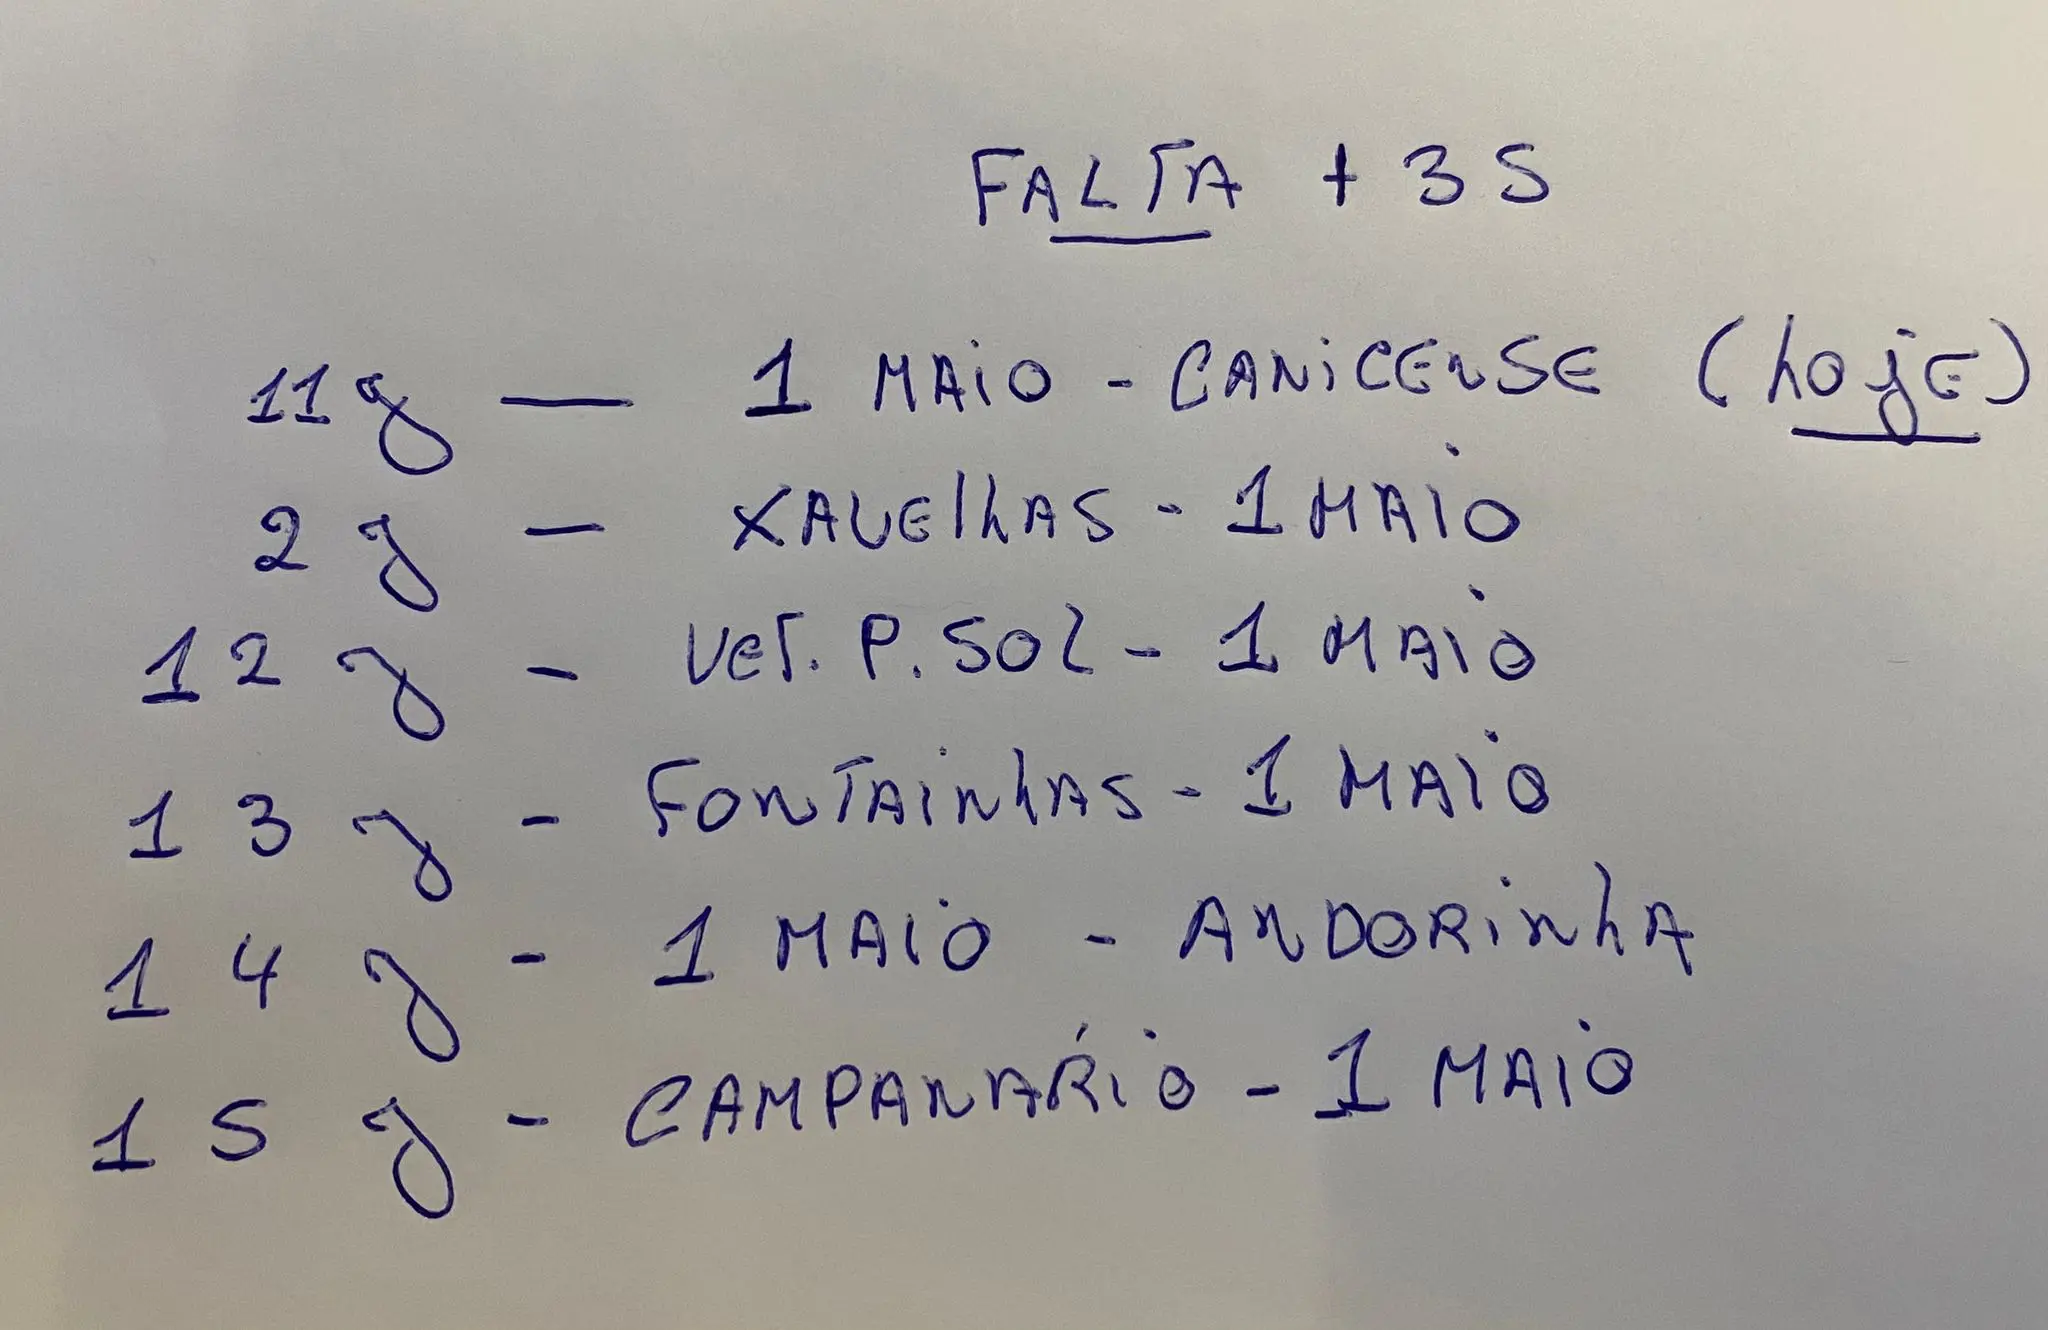 FALTA + 3 S
11 J — 1 MAiO - CANiCENSE (hojE)
2 J — XAVElhAS - 1 MAIO
12 J - VET. P. SOL - 1 MAIO
13 J - FONTAINhAS - 1 MAIO
14 J - 1 MAIO - ANDORiNhA
15 J - CAMPANÁRIO - 1 MAIO